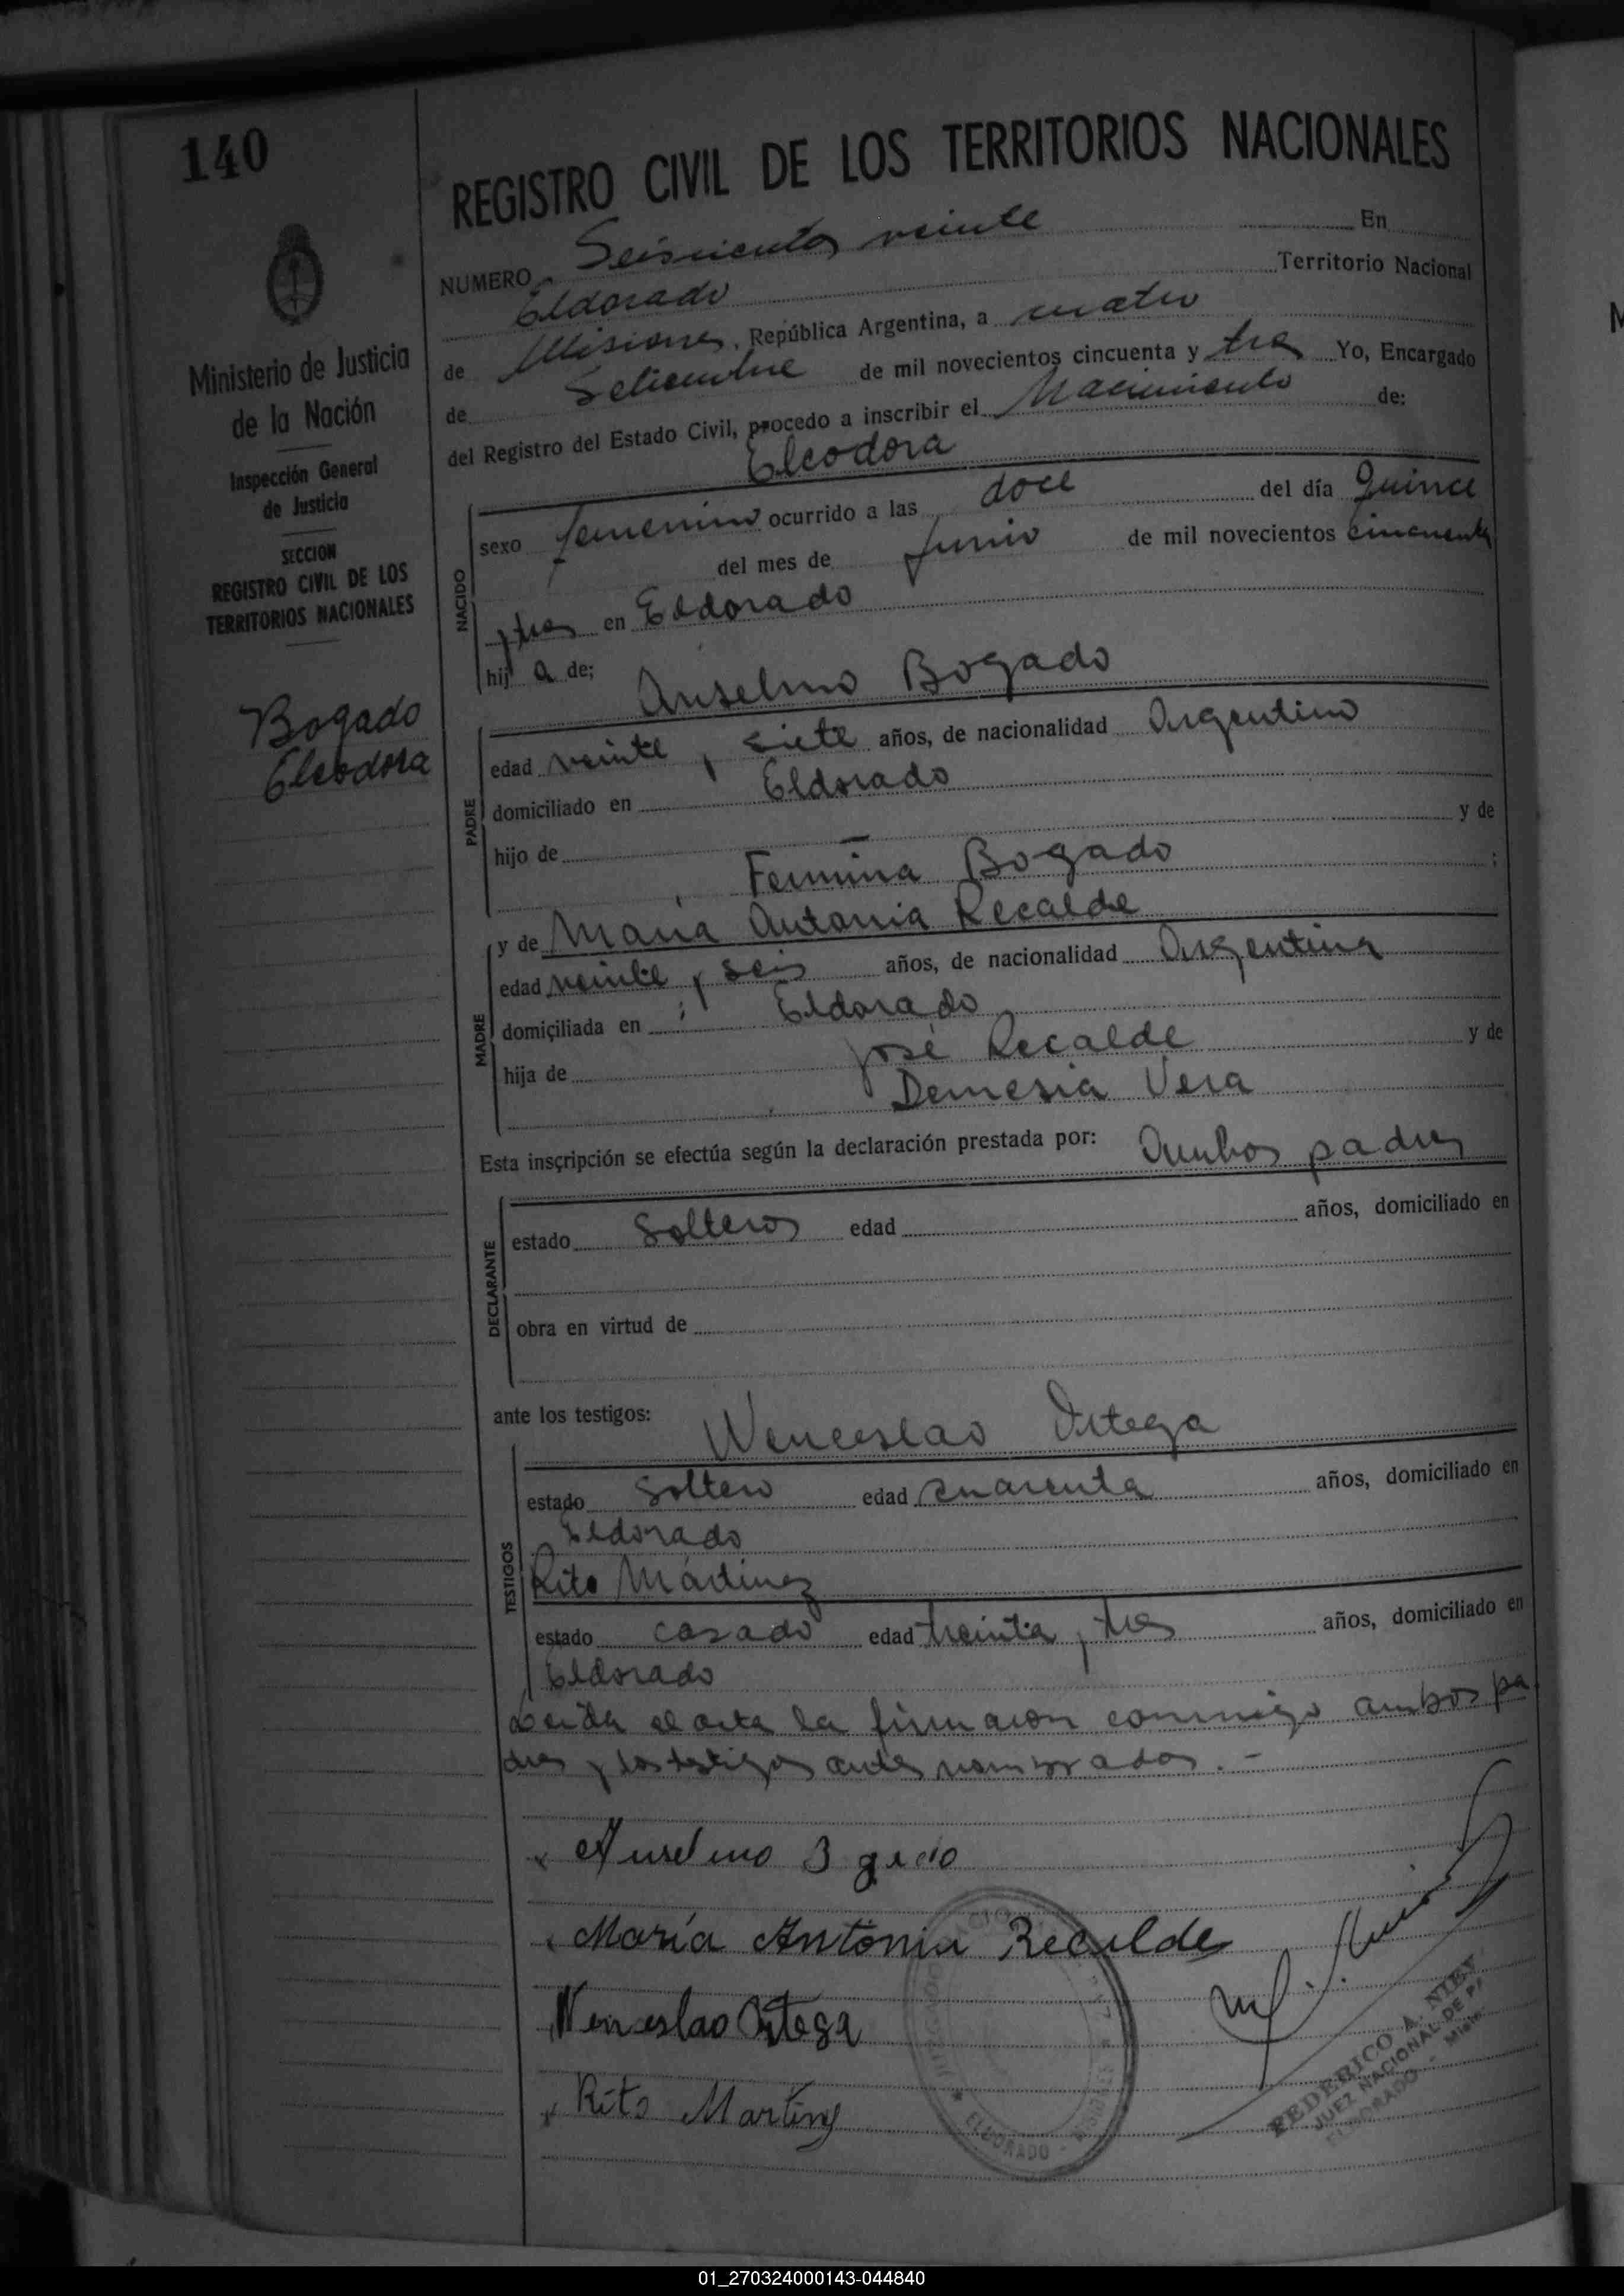 140
REGISTRO CIVIL DE LOS TERRITORIOS NACIONALES
NUMERO Seiscientos veinte En
Eldorado Territorio Nacional
de Misiones, República Argentina, a cuatro
de Setiembre de mil novecientos cincuenta y tres Yo, Encargado
del Registro del Estado Civil, procedo a inscribir el Nacimiento de:
Eleodora
Ministerio de Justicia
de la Nación
Inspección General
de Justicia
SECCION
REGISTRO CIVIL DE LOS
TERRITORIOS NACIONALES
Bogado
Eleodora
NACIDO
sexo femenino ocurrido a las doce del día quince
del mes de Junio de mil novecientos cincuenta
y tres en Eldorado
hij a de;
Anselmo Bogado
PADRE
edad veinte y siete años, de nacionalidad Argentino
domiciliado en Eldorado
hijo de y de
Bogado ;
y de María Antonia Recalde
MADRE
edad veinte y seis años, de nacionalidad Argentina
domiciliada en Eldorado
hija de José Recalde y de
Demesia Vera
Esta inscripción se efectúa según la declaración prestada por: Ambos padres
DECLARANTE
estado Solteros edad años, domiciliado en
obra en virtud de
ante los testigos: Wenceslao Ortega
TESTIGOS
estado Soltero edad cuarenta años, domiciliado en
Eldorado
Rito Martinez
estado casado edad treinta y tres años, domiciliado en
Eldorado
Leida el acta la firmaron conmigo ambos pa
dres y los testigos antes nombrados.-
Anselmo Bogado
María Antonia Recalde
Wenceslao Ortega
Rito Martinez
ELDORADO - MISIONES
FEDERICO A. NIEV
JUEZ NACIONAL DE PA
ELDORADO - Misio
01_270324000143-044840